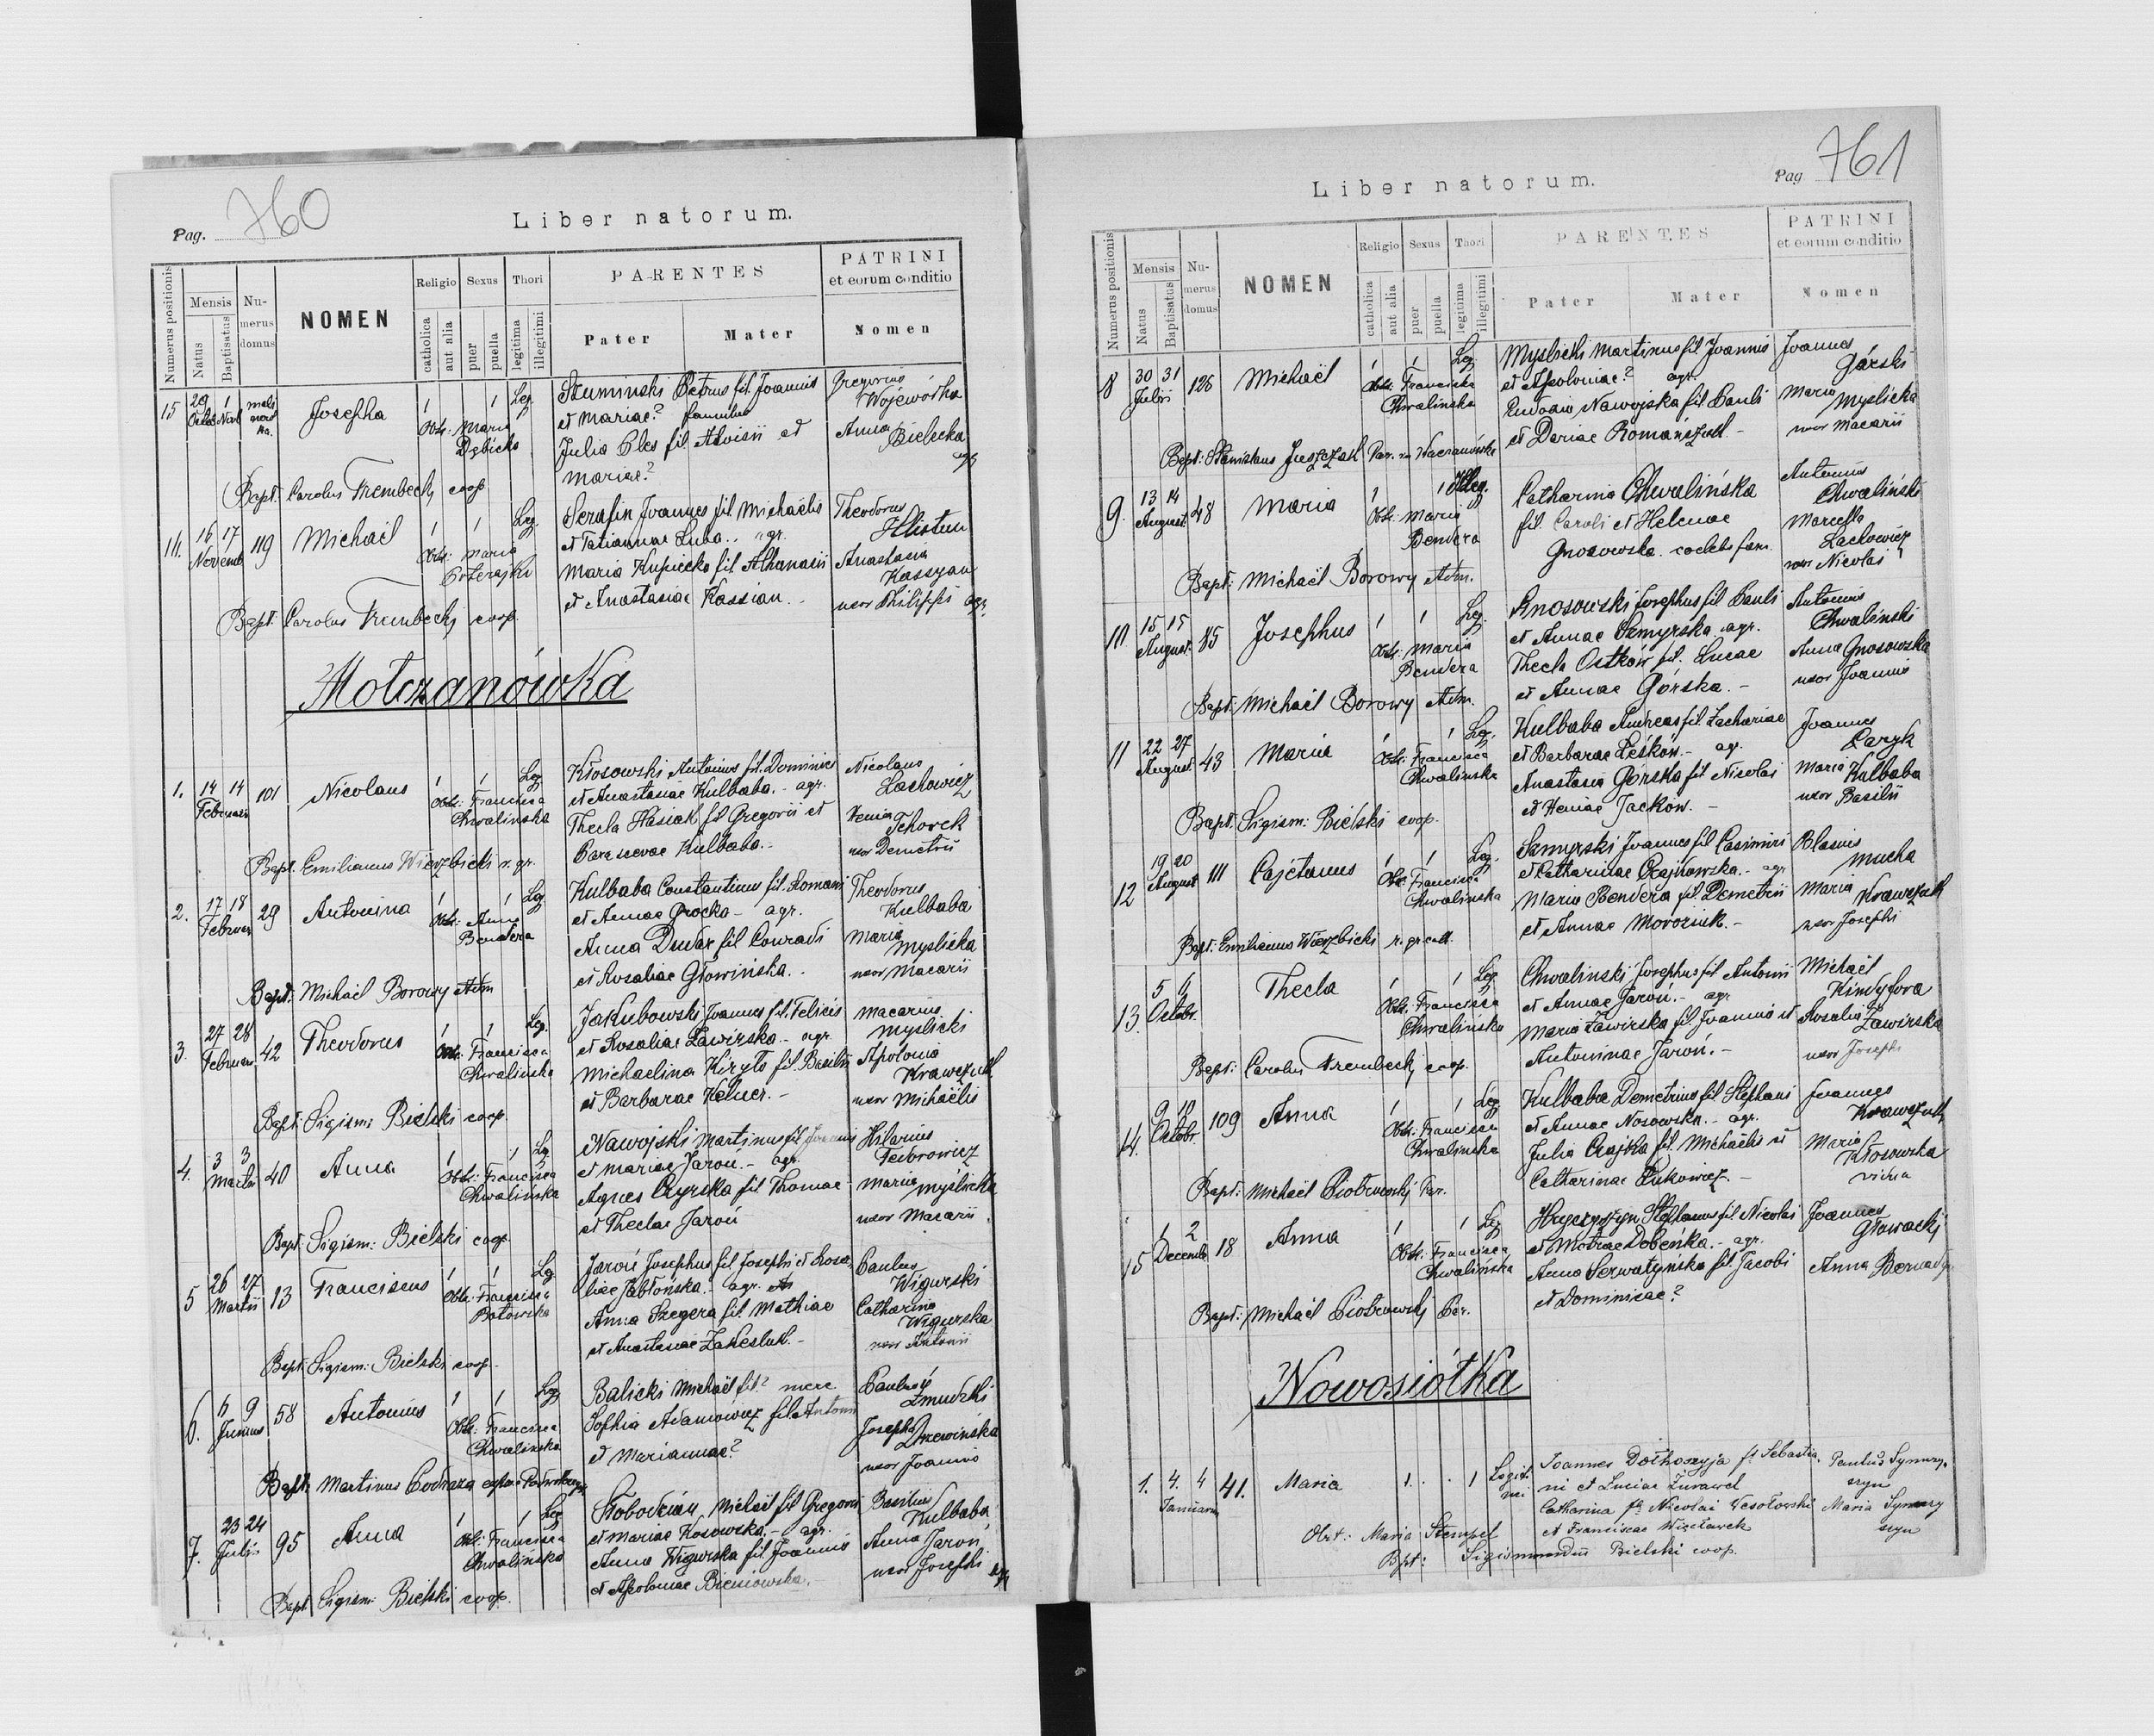 Pag. 760
Liber natorum.
Numerus positionis
Mensis
Natus
Baptisatus
Numerus domus
NOMEN
Religio
catholica
aut alia
Sexus
puer
puella
Thori
legitima
illegitimi
PARENTES
Pater
Mater
PATRINI
et eorum conditio
Nomen
15 29 1 Josepha 1 1 Leg. Szuminski Petrus fil. Joannis Gregorius
Octob Nov et Mariae? famulus Wojewódka
Obst: Maria Julia Bles fil. Aloisii et Anna
Dębicka Mariae? Bielecka
Bapt: Carolus Trembecki coop
16 17 119 Michaël 1 1 Leg. Serafin Joannes fil. Michaëlis Theodorus
Novemb et Tatiannae Luba.. agr. Hlistun
Obst: Maria Maria Kupiecka fil Athanasii Anastasia
et Anastasiae Kassian. Kassyan
Bapt: Carolus Trembecki coop. uxor Philippi agr.
Mołczanówka
1. 14 14 101 Nicolaus 1 1 Leg Kłosowski Antonius fil. Dominici Nicolaus
Februarii et Anastasiae Kulbaba. - agr. Lachowicz
Obst: Francisca Thecla Hasiak fil Gregorii et Xenia
Chwalinska Parascevae Kulbaba.- Tchorek
Bapt. Emilianus Wierzbicki r. gr. uxor Demetrii
2. 17 18 29 Antonina 1 1 Leg Kulbaba Constantinus fil. Romani Theodorus
Februar et Annae Grocka - agr. Kulbaba
Obst: Anna Anna Dudar fil Conradi Maria
Bendera et Rosaliae Głowińska. Myslicka
Bapt: Michaël Borowy Adm uxor Macarii
3. 27 28 42 Theodorus 1 1 Leg. Jakubowski Joannes fil. Felicis Macarius
Februar et Rosaliae Zawirska - agr. Myslicki
Obst: Francisca Michaelina Kiryło fil Basilii Apolonia
Chwalinska et Barbarae Kelner. - Krawczuk
Bapt: Sigism: Bielski coop. uxor Michaëlis
4. 3 3 40 Anna 1 1 Lg Nawojski Martinus fil Joannis Hilarius
Martii et Mariae Jaroń. - agr. Fedorowicz
Obst: Francisca Agnes Czyrska fil Thomae Maria
Chwalińska et Theclae Jaroń Myślicka
Bapt: Sigism: Bielski coop. uxor Macarii
5 26 27 13 Franciscus 1 1 Leg Jaroń Josephus fil Josephi et Rosa Paulus
Martii liae Jabłońska. agr. Wigurski
Obst: Francisca Anna Szegera fil. Mathiae Catharina
et Anastasiae Wigurska
Bapt: Sigism: Bielski coop. uxor Antonii
6. 6 9 58 Antonius 1 1 Leg Balicki Michaël fil? merc Paulus
Junius Sophia Adamowicz fil. Antonii Żmudzki
Obst: Francisca et Mariannae? Josepha
Chwalinska Drewińska
Bapt: Martinus uxor Joannis
7. 23 24 95 Anna 1 1 Leg Słobodzian Michaël fil Gregorii Basilius
Julii et Mariae Kosowska. - agr. Kulbaba
Obst: Francisca Anna Wigurska fil. Joannis Anna Jaroń
Chwalińska et Apoloniae Biesiowska. uxor Josephi
Bapt Sigism: Bielski coop.
Pag 761
Liber natorum.
Numerus positionis
Mensis
Natus
Baptisatus
Numerus domus
NOMEN
Religio
catholica
aut alia
Sexus
puer
puella
Thori
legitima
illegitimi
PARENTES
Pater
Mater
PATRINI
et eorum conditio
Nomen
8 30 31 126 Michaël 1 1 Leg Myslicki Martinus fil. Joannis Joannes
Julii et Apoloniae? agr. Górski
Obst: Francisca Eudoxia Nawojska fil Pauli Maria
Chwalinska et Dariae Romańczuk.- Myslicka
Bapt: Stanislaus Juszczak Par. uxor Macarii
9. 13 14 48 Maria 1 1 Illeg. Catharina Chwalińska Antonius
August fil Caroli et Helenae Chwaliński
Obst: Maria Gnosowska. caelebs fam. Marcella
Bendera Lachowicz
Bapt: Michaël Borowy Adm. uxor Nicolai
10 15 15 85 Josephus 1 1 Leg. Gnosowski Josephus fil Pauli Antonius
August et Annae Szmyrska agr. Chwaliński
Obst: Maria Thecla Ostków fil. Lucae Anna Gnosowska
Bendera et Annae Górska. - uxor Joannis
Bapt: Michaël Borowy Adm.
11 22 27 43 Maria 1 1 Leg. Kulbaba Andreas fil. Zachariae Joannes
August et Barbarae Leśków. - ag. Caryk
Obst: Francisca Anastasia Gorska fil Nicolai Maria Kulbaba
Chwalinska et Xeniae Jacków. - uxor Basilii
Bapt: Sigism: Bielski coop.
12 19 20 111 Cajetanus 1 1 Leg. Szmyrski Joannes fil Casimiri Blasius
August et Catharinae Czajkowska. - agr Mucha
Obst: Francisca Maria Bendera fil Demetrii Maria Krawczuk
Chwalinska et Annae Moroziuk.- uxor Josephi
Bapt: Emilianus Wierzbicki r. gr. cat.
13. 5 6 Thecla 1 1 Leg Chwalinski Josephus fil Antonii Michaël
Octobr. et Annae Jaroń. - agr Kindyfora
Obst: Francisca Maria Zawirska fil. Joannis et Rosalia
Chwalińska Antoninae Jaroń. - Zawirska
Bapt: Carolus Trembecki coop. uxor Josephi
14. 9 10 109 Anna 1 1 Leg Kulbaba Demetrius fil Stephani Joannes
Octobr. et Annae Nosowska. - agr. Krawczuk
Obst: Francisca Julia Czajka fil. Michaëlis et Maria
Chwalinska Catharinae Łukowicz. - Kłosowska
Bapt: Michaël Piotrowski Par. vidua
15 1 2 18 Anna 1 1 Leg Hryczyszyn Stephanus fil. Nicolai Joannes
Decembr et Motriae Dobenka. - agr. Głowacki
Obst: Francisca Anna Serwatyńska fil Jacobi Anna
Chwalińska et Dominicae?
Bapt: Michaël Piotrowski Par.
Nowosiółka
1. 4. 4 41. Maria 1. . . 1 Legit. Joannes Dołhoszyja fs Sebastia. Paulus Symczy.
Januarii mi ni et Luciae Żurawel szyn
Catharina fa Nicolai Wesołowski Maria Symczy
Obst: Maria Stempel et Franciscae Wisławek szyn
Bpt: Sigismundus Bielski coop.